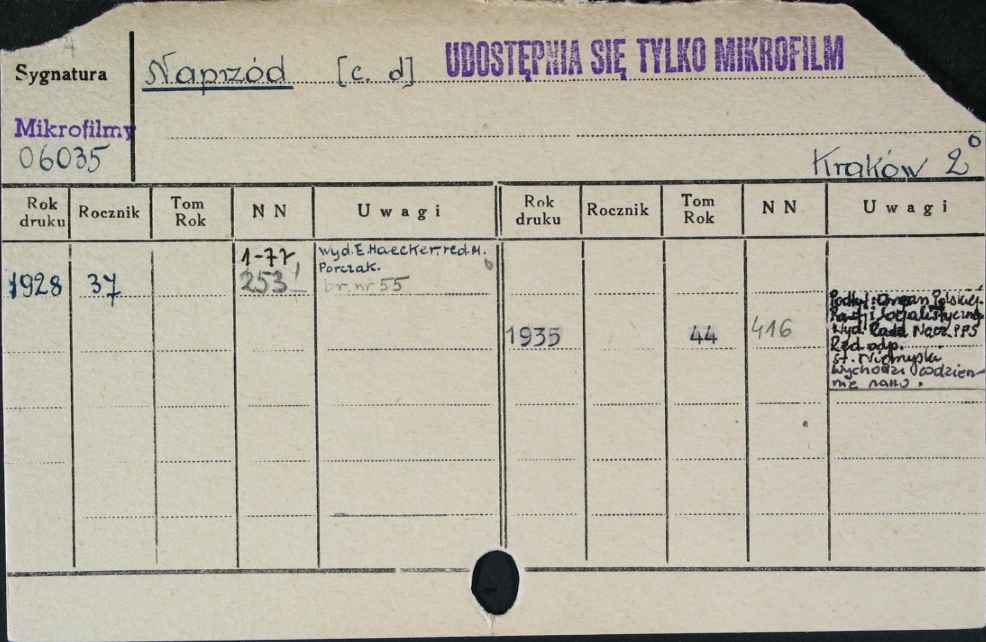 Sygnatura
Naprzód [c. d] UDOSTĘPNIA SIĘ TYLKO MIKROFILM
Mikrofilmy
06035
Kraków 2°
Rok druku Rocznik Tom Rok NN Uwagi Rok druku Rocznik Tom Rok NN Uwagi
1928 37 1-77, 253 wyd. E. Haecker, red. M.
Porczak.
br. nr 55
1935 44 416 Podtyt: Organ Polskiej
Partji Socjalistycznej
Wyd. Rada Nacz. PPS
Red. odp.
wychodzi codzien-
nie rano.